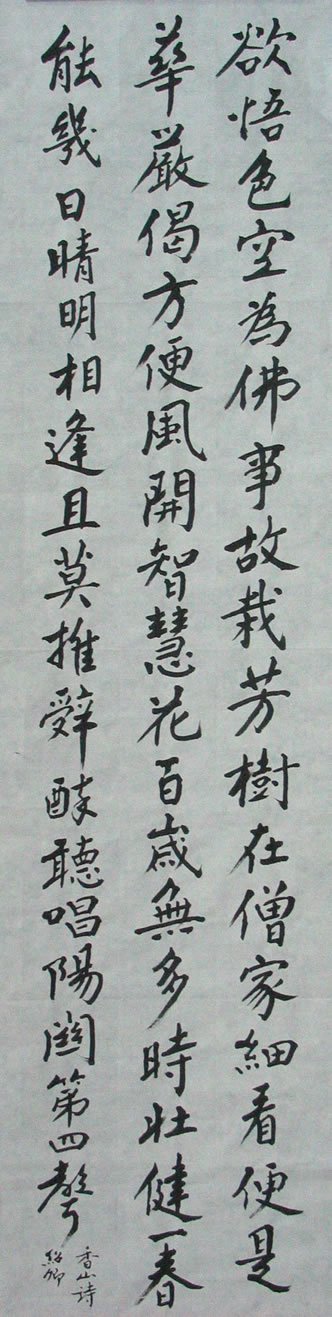 欲悟色空為佛事故栽芳樹在僧家細看便是
華嚴偈方便風開智慧花百歲無多時壯健一春
能幾日晴明相逢且莫推辭醉聽唱陽關第四聲
香山诗
紹卿